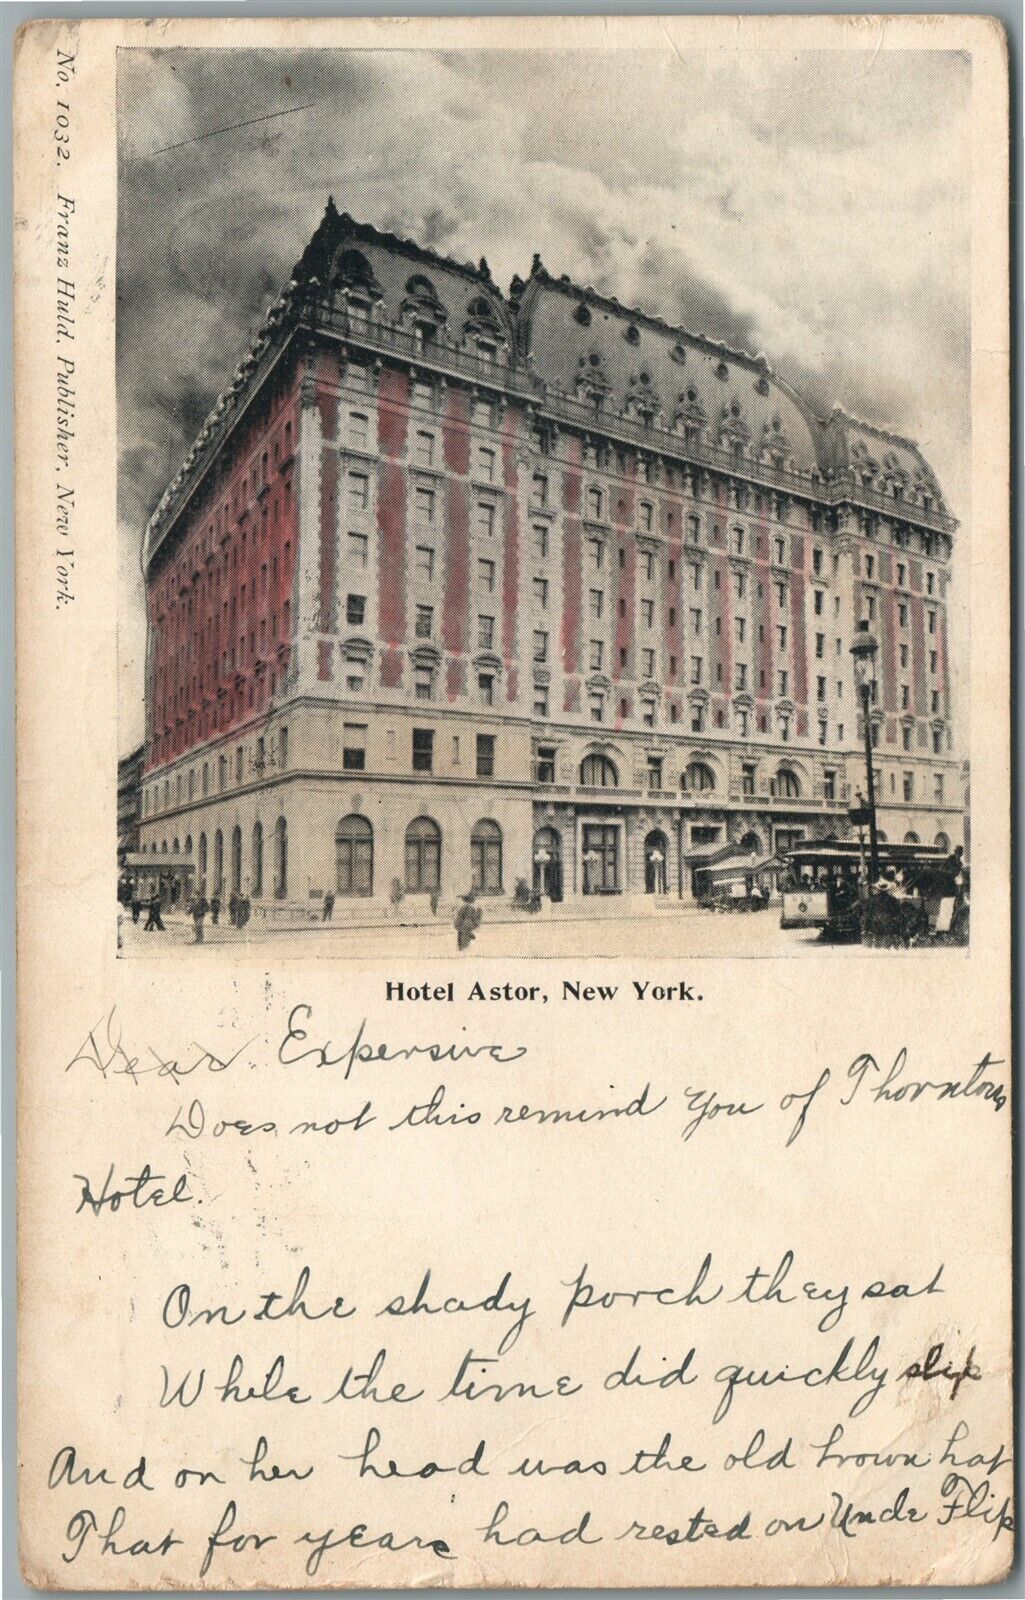 No. 1032. Franz Huld, Publisher, New York.
Hotel Astor, New York.
Dear Expensive
Does not this remind you of Thorntons
Hotel.
On the shady porch they sat
While the time did quickly slip
And on her head was the old brown hat
That for years had rested on Uncle Flip